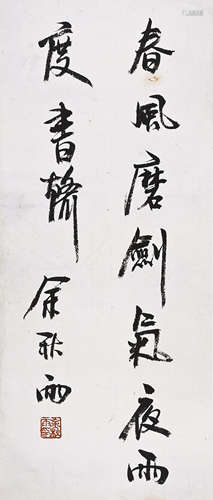 春風磨劍氣夜雨
度書聲
余秋雨